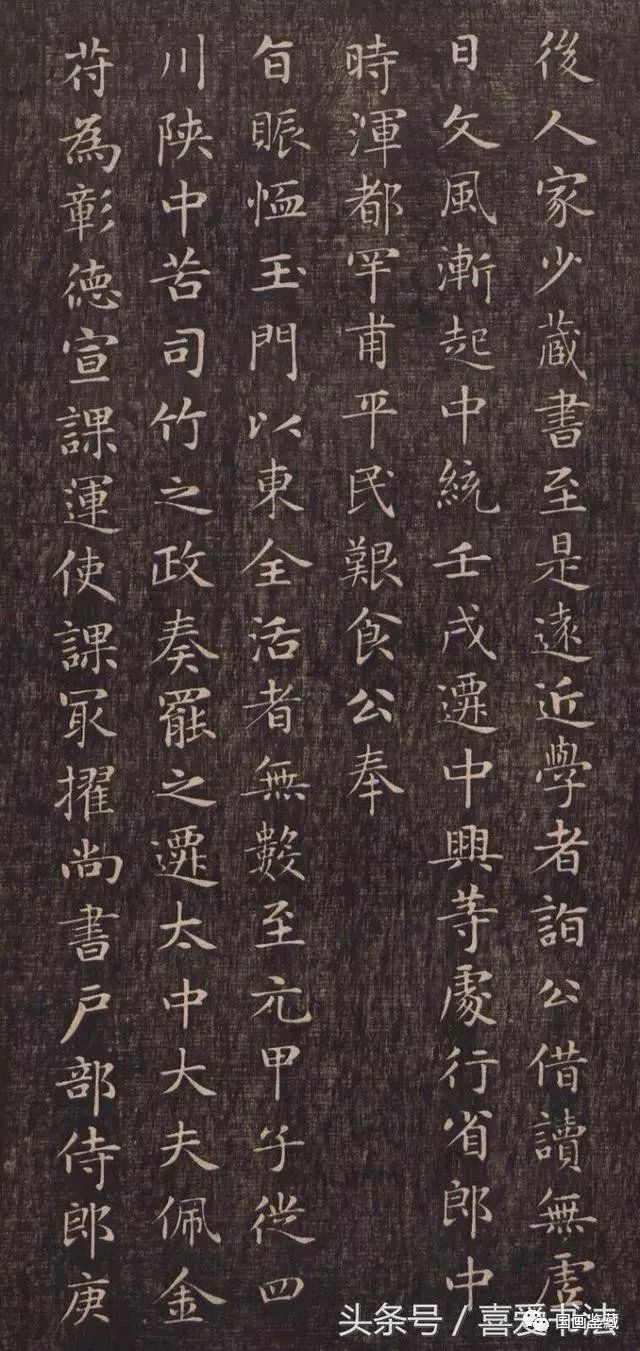 後人家少蔵書至是逺近學者詣公借讀無虗
日文風漸起中統壬戌遷中興等䖏行省郎中
時渾都罕甫平民艱食公奉
旨賑恤玉門以東全活者無數至元甲子從四
川陝中苦司竹之政奏罷之遷太中大夫佩金
苻為彰徳宣課運使課冣擢尚書戸部侍郎庚
头条号 / 喜爱书法
国画鉴藏